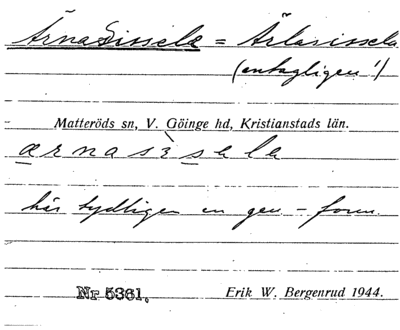 Ärnasissela = Ärlasissela
(antagligen!)
Matteröds sn, V. Göinge hd, Kristianstads län.
ærnasisela
här tydligen en gen-form.
Nr 5361.
Erik W. Bergenrud 1944.